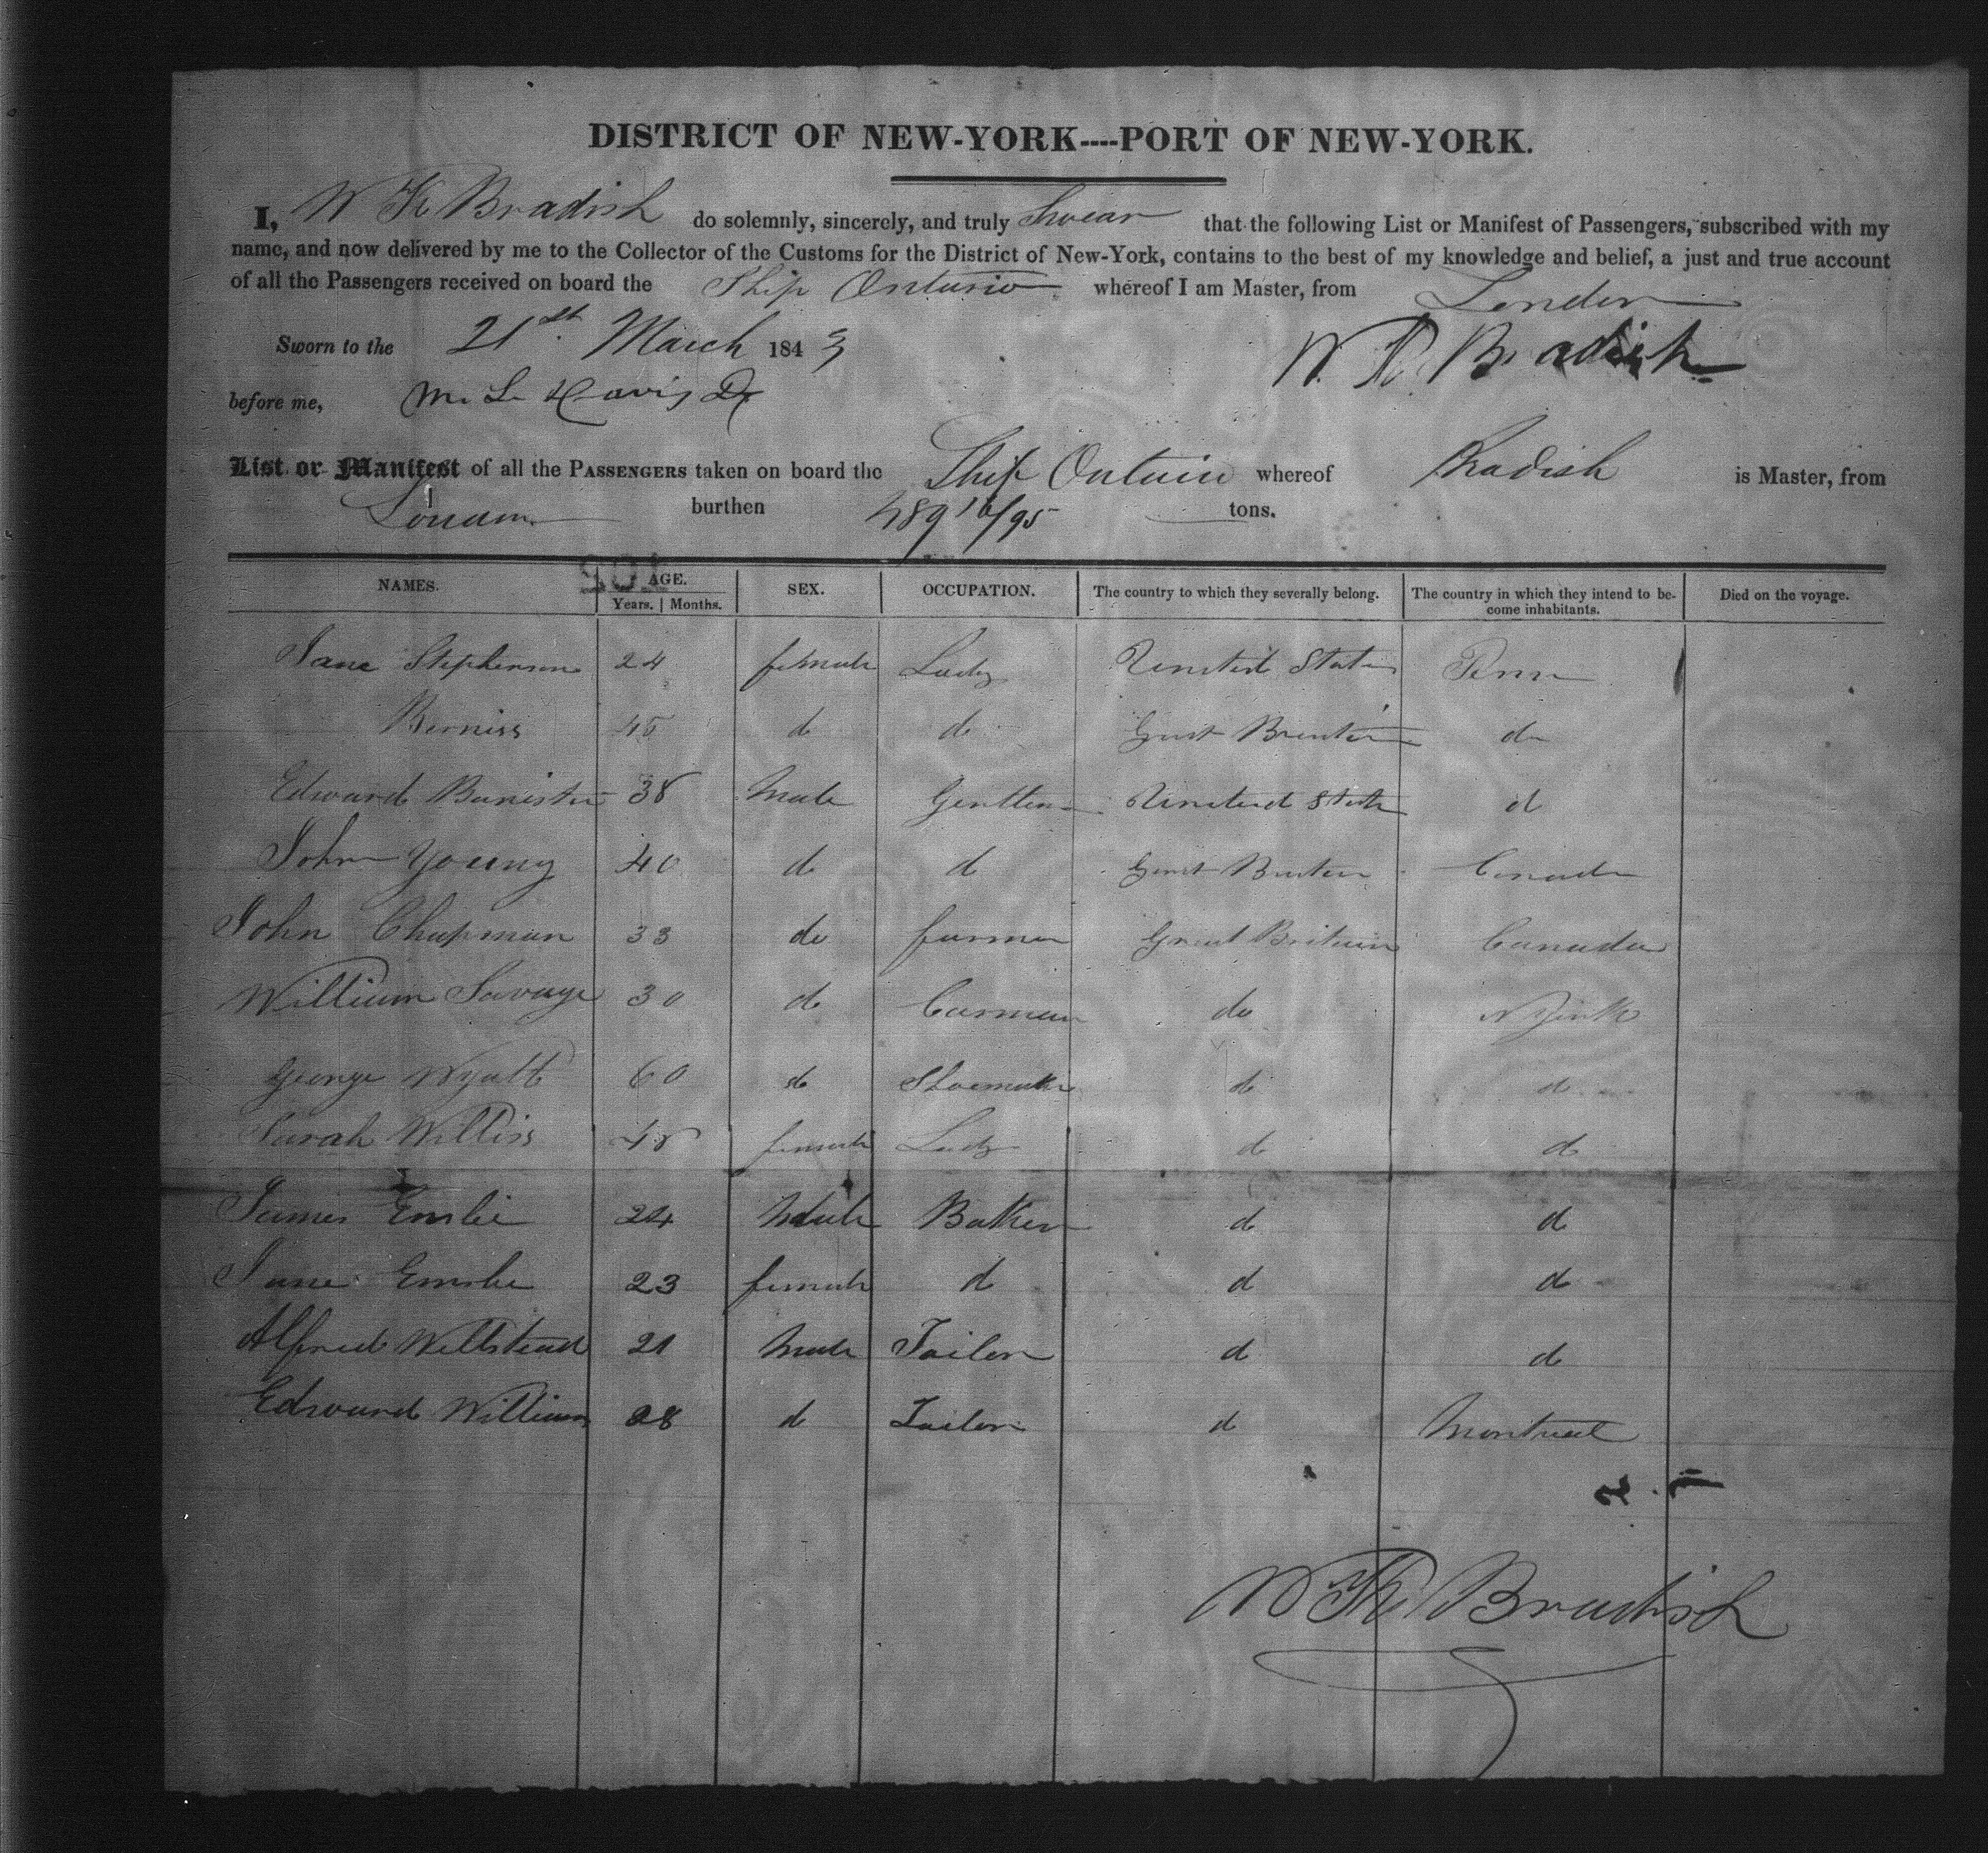 DISTRICT OF NEW-YORK----PORT OF NEW-YORK.
I, W K Bradish do solemnly, sincerely, and truly Swear that the following List or Manifest of Passengers, subscribed with my
name, and now delivered by me to the Collector of the Customs for the District of New-York, contains to the best of my knowledge and belief, a just and true account
of all the Passengers received on board the Ship Ontario whereof I am Master, from London
Sworn to the 21st March 1843 W. K. Bradish
before me, M. L. Davis
List or Manifest of all the PASSENGERS taken on board the Ship Ontario whereof Bradish is Master, from
London burthen 489 16/95 tons.
NAMES. AGE. SEX. OCCUPATION. The country to which they severally belong. The country in which they intend to be- Died on the voyage.
Years. Months. come inhabitants.
Jane Stephenson 24 female Lady United States Penn
45 d d Great Britain do
Edward Banister 38 Male Gentlem United State d
John Young 40 d d Great Britain Canada
John Chapman 33 do farmer Great Britain Canada
William Savage 30 d Carman do N York
George Wyatt 60 d Shoemaker d d
Sarah Williss 48 female Lady d d
James Emslie 24 Male Baker d d
Jane Emslie 23 female d d d
Alfred Wellstead 21 Male Tailor d d
Edward Williams 28 d Tailor d Montreal
W K Bradish